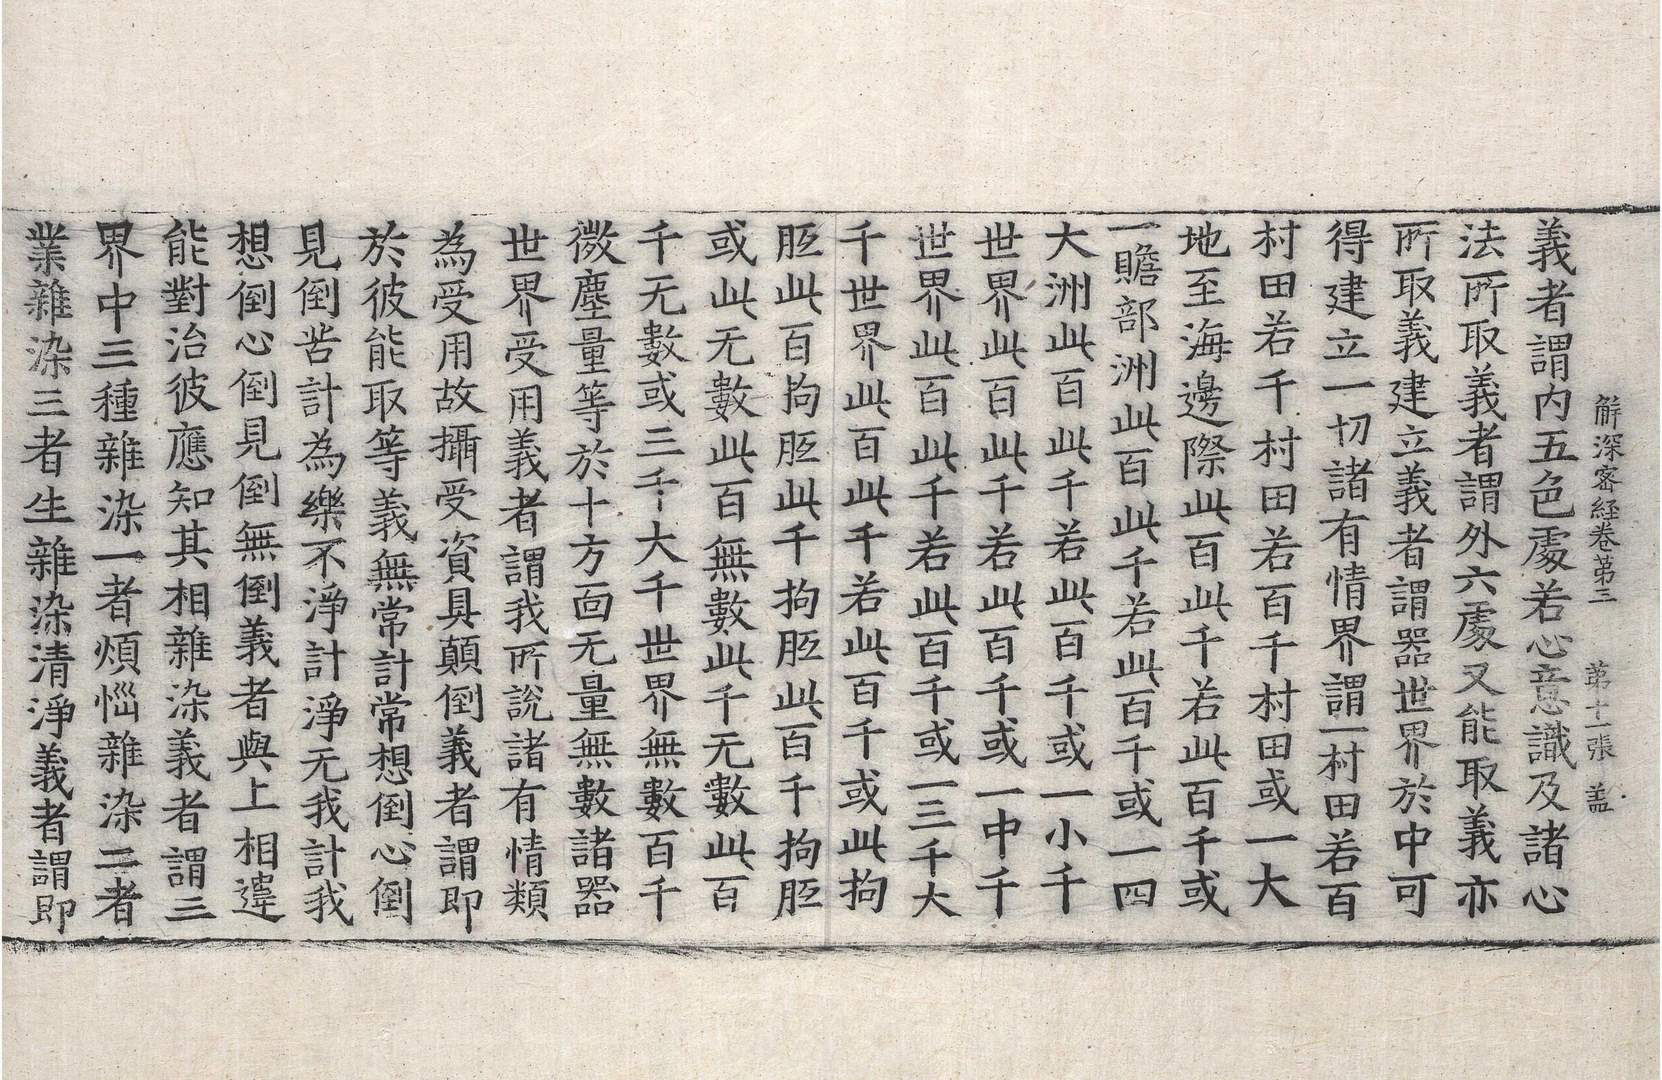 解深密経卷第三 第十一張 盖
義者謂内五色處若心意識及諸心
法所取義者謂外六處又能取義亦
所取義建立義者謂器世界於中可
得建立一切諸有情界謂一村田若百
村田若千村田若百千村田或一大
地至海邊際此百此千若此百千或
一贍部洲此百此千若此百千或一四
大洲此百此千若此百千或一小千
世界此百此千若此百千或一中千
世界此百此千若此百千或一三千大
千世界此百此千若此百千或此拘
胝此百拘胝此千拘胝此百千拘胝
或此无數此百無數此千无數此百
千无數或三千大千世界無數百千
微塵量等於十方面无量無數諸器
世界受用義者謂我所說諸有情類
為受用故攝受資具顛倒義者謂即
於彼能取等義無常計常想倒心倒
見倒苦計為樂不淨計淨无我計我
想倒心倒見倒無倒義者與上相違
能對治彼應知其相雜染義者謂三
界中三種雜染一者煩惱雜染二者
業雜染三者生雜染清淨義者謂即